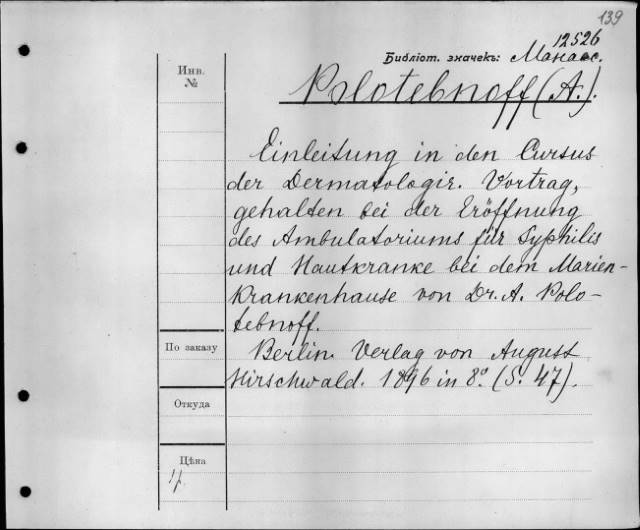 139
12526
Библіот. значекъ: Манасс.
Инв.
№
Polotebnoff (A.).
Einleitung in den Cursus
der Dermatologie. Vortrag,
gehalten bei der Eröffnung
des Ambulatoriums für Syphilis
und Hautkranke bei dem Marien-
Krankenhause von Dr. A. Polo-
tebnoff.
По заказу
Berlin. Verlag von August
Hirschwald. 1896 in 8° (S. 47).
Откуда
Цѣна